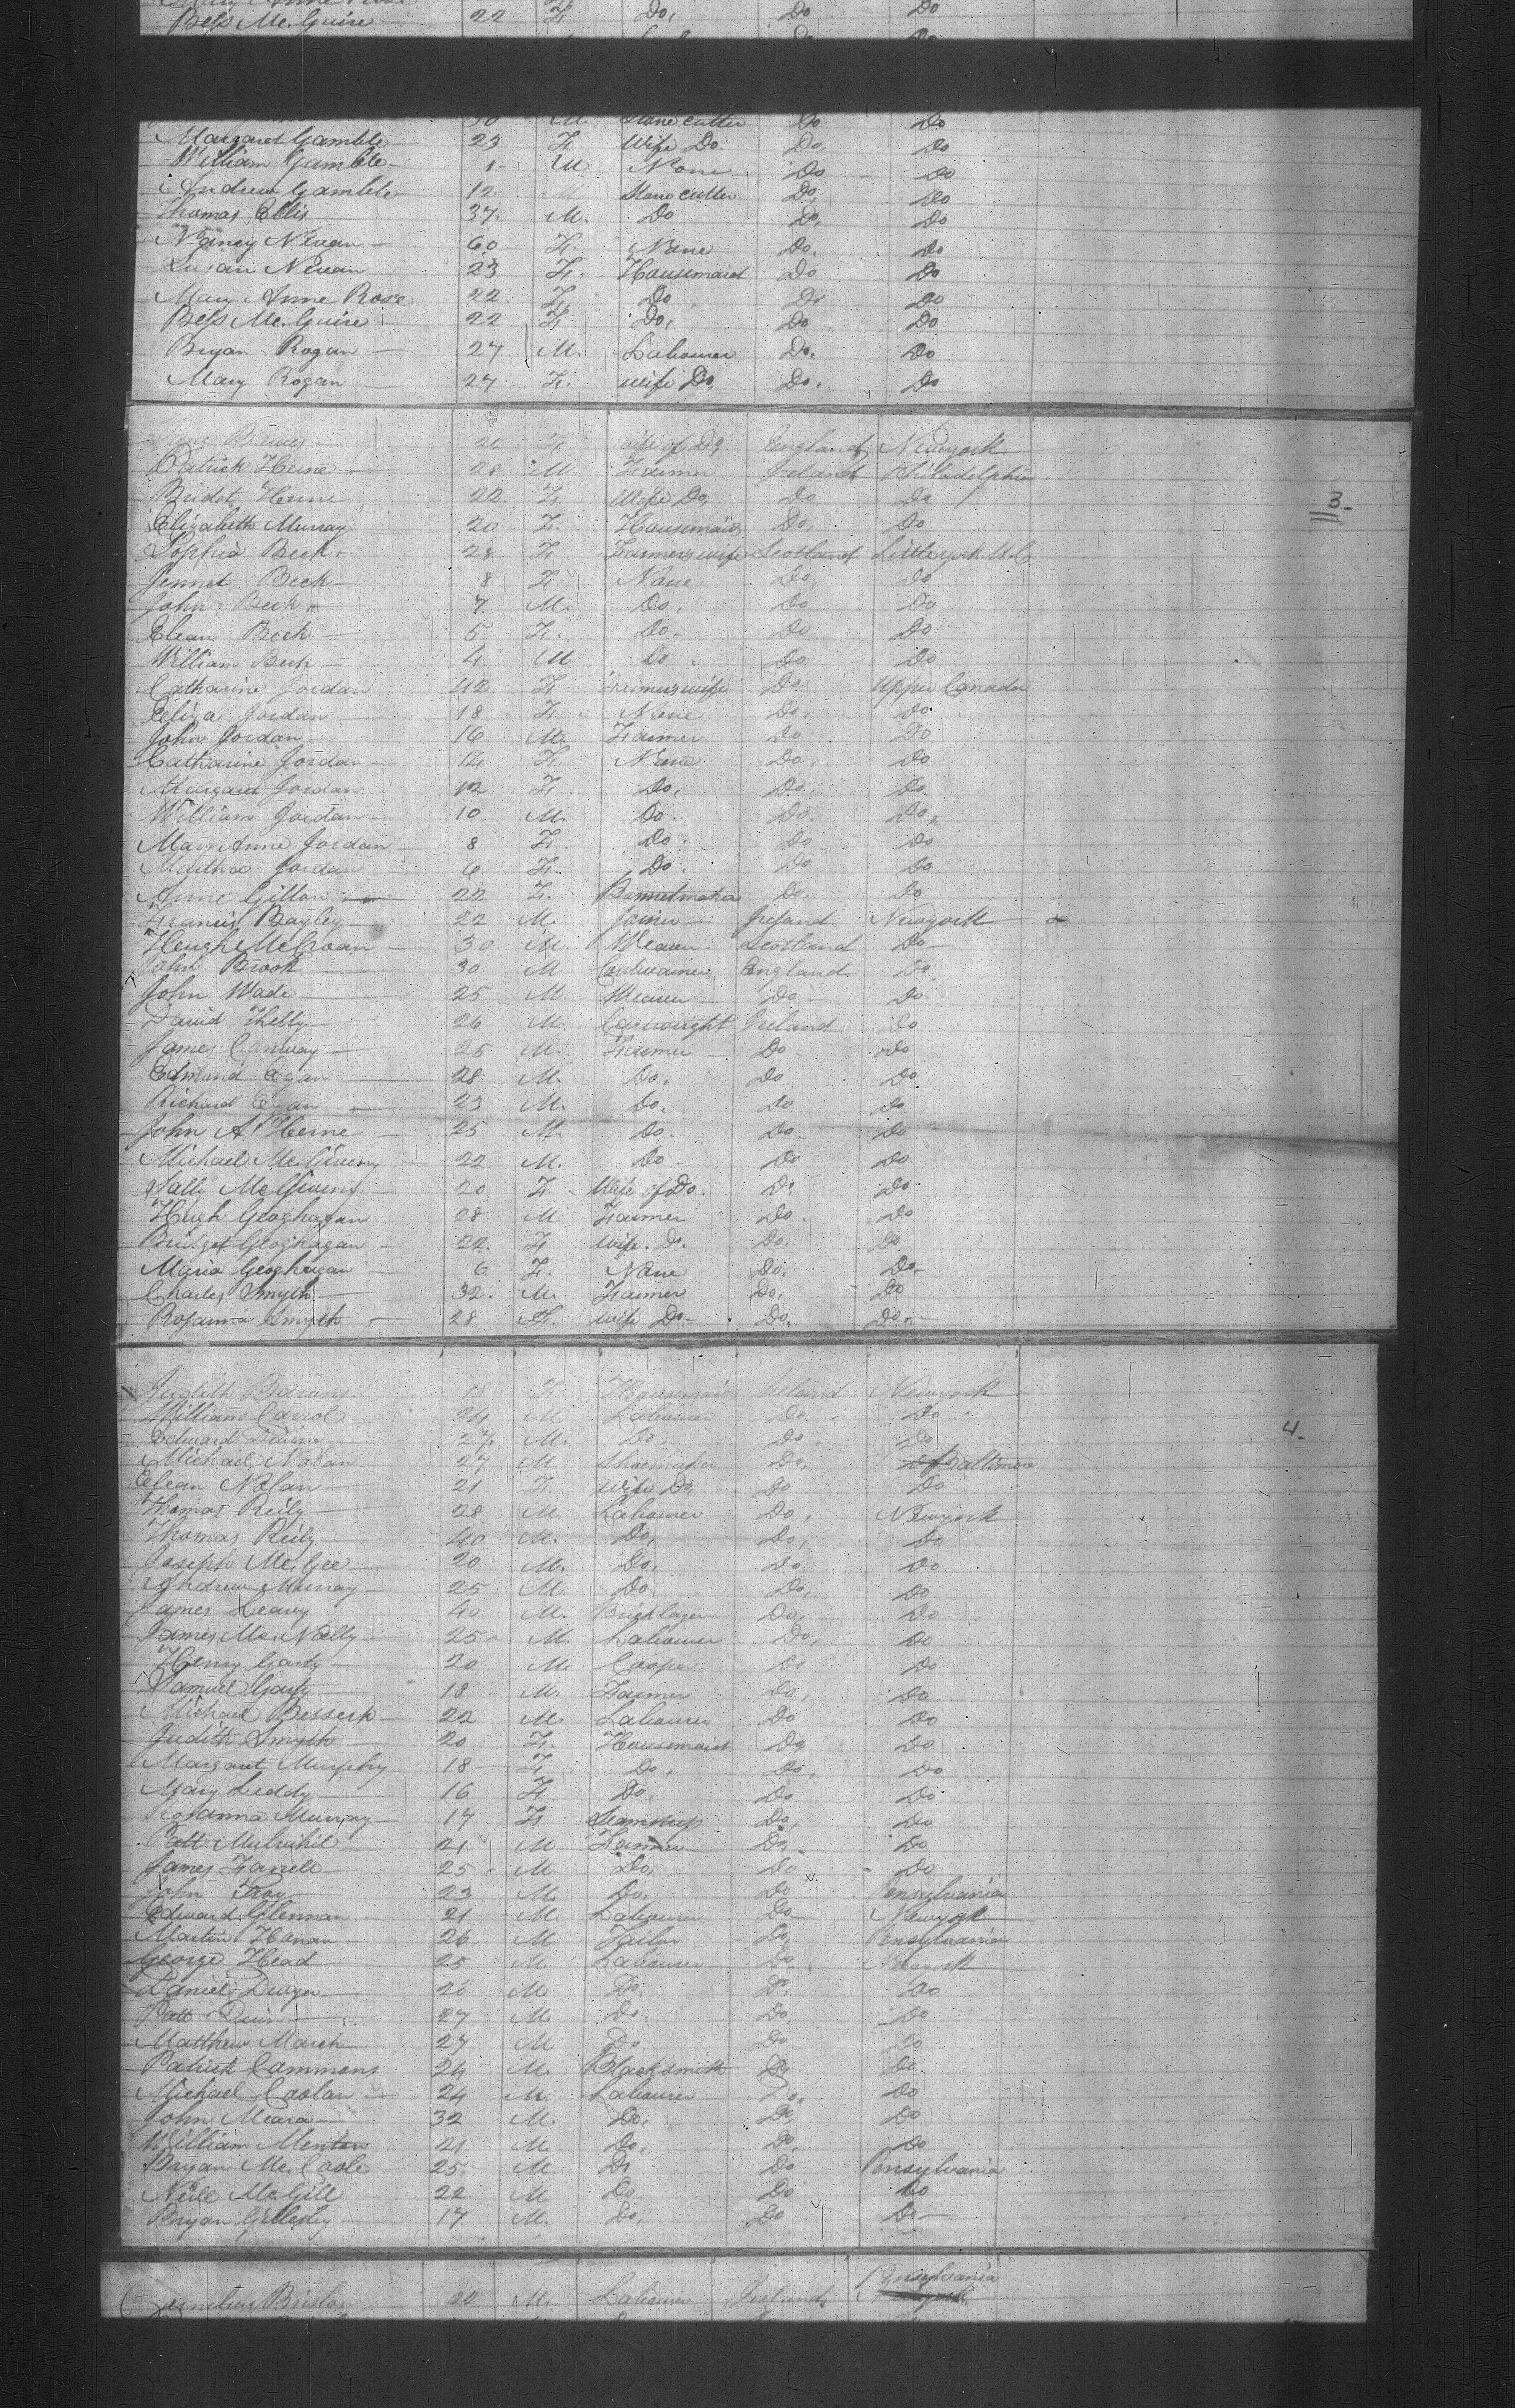 Bess Mc. Guire 22 F. Do, Do Do
30 M. Stone cutter Do Do
Margaret Gamble 23 F. Wife Do. Do. Do
William Gamble 1 M None Do Do
Andrew Gamble 12 M Stone cutter Do, Do
Thomas Ellis 37. M. Do Do, Do
Nancy Nevan 60 F. None Do. Do
Susan Nevan 23 F. Housemaid Do Do
Mary Anne Rose 22 F. Do Do Do
Bess Mc. Guire 22 F Do, Do Do
Bryan Rogan 27 M. Labourer Do. Do
Mary Rogan 27 F. wife Do, Do. Do
22 F wife of Do, England, Newyork
Patrick Herne 28 M. Farmer Ireland Philadelphia
3.
Bridet Herne 22. F. Wife Do, Do Do
Elizabeth Murray 20 F. Housemaid Do, Do
Sophia Beck 28 F. Farmers wife Scotland Little york U.C.
Jennet Beck 8 F None Do, Do
John Beck 7 M. Do. Do Do
Elean Beck 5 F. Do Do Do
William Beck 4 M Do Do Do
Catharine Jordan 42 F. Farmers wife Do Upper Canada
Eliza Jordan 18 F. None Do. Do.
John Jordan 16 M. Farmer Do Do
Catharine Jordan 14 F. None Do. Do
Margaret Jordan 12 F. Do, Do. Do.
William Jordan 10. M. Do. Do. Do.
Mary Anne Jordan 8 F. Do. Do Do
Martha Jordan 6 F. Do. Do Do
Anne Gillon 22 F. Bonnetmaker Do. Do
Francis Bagley 22 M. Joiner Ireland Newyork
Heugh McCroan 30 M. Weaver Scotland Do
John Brook 30 M Cordwainer England. Do
John Wade 25 M. Weaver Do Do
David 26 M. Cartwright Ireland Do
James Conway 25 M. Farmer Do Do
Edmund Egan 28 M. Do. Do Do
Richard Egan 23 M. Do. Do Do
John A'Herne 25 M. Do. Do. Do
Michael Mc. Giveny 22 M. Do Do Do
Sally Mc Giveny 20 F Wife of Do. Do. Do
Hugh Geoghagan 28 M Farmer Do. Do
Bridget Geoghagan 22. F. wife. Do. Do. Do
Maria Geoghagan 6 F. None Do. Do.
Charles Smyth 32. M. Farmer Do, Do
Rosanna Smyth 28 F. wife Do. Do. Do.
Judith 18 F. Housemaid Ireland Newyork
William Carrol 24 M. Labourer Do. Do
4.
Edward Divine 27. M. Do. Do. Do
Michael Nolan 27 M Shoemaker Do, Do Baltimore
Elean Nolan 21 F. wife Do, Do Do
Thomas Reily 28 M. Labourer Do, Newyork
Thomas Reily 40 M. Do, Do, Do
Joseph Mc. Gee 20 M. Do, Do Do
Andrew Murray 25 M. Do, Do, Do
James Leavy 40 M. Bricklayer Do, Do
James Mc. Nally 25 M. Labourer Do, Do
Henry Garty 20 M. Cooper Do Do
Samuel Garty 18 M. Farmer Do, Do
Michael 22 M. Labourer Do Do
Judith Smyth 20 F. Housemaid Do, Do
Margaret Murphy 18 F. Do, Do, Do
Mary Leddy 16 F. Do, Do Do
Rosanna Murray 17 F. Seamstress Do, Do
Patt 21 M Farmer Do, Do
James Farrell 25 M. Do, Do Do
John Troy 23 M. Do, Do Pensylvania
Edward Glennan 21 M. Labourer Do Newyork
Martin Honan 26 M. Tailor Do, Pensylvania
George Head 25 M. Labourer Do, Newyork
Daniel Dwyer 20 M. Do, Do. Do
Patt Quin 27 M. Do. Do, Do
Matthew March 27 M Do Do Do
Patrick Cammons 24 M. Blacksmith Do, Do
Michael 24 M. Labourer Do. Do
John Meara 32 M. Do, Do, Do
William Menton 21 M. Do, Do, Do
Bryan Mc. Cole 25 M. Do Do Pensylvania
Neill McGill 22 M. Do Do Do
Bryan Gillesby 17 M. Do, Do Do
Pensylvania
Cornelius 20 M. Labourer Ireland, Newyork